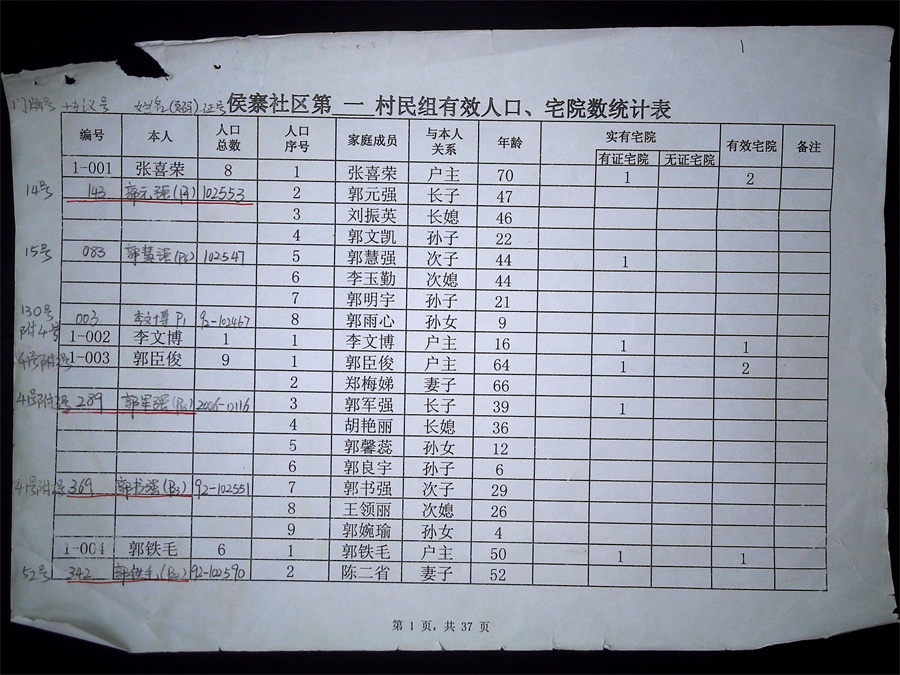 1
门牌号 协议号 姓名(页码)证号 侯寨社区第 一 村民组有效人口、宅院数统计表
编号 本人 人口总数 人口序号 家庭成员 与本人关系 年龄 实有宅院 有效宅院 备注
有证宅院 无证宅院
1-001 张喜荣 8 1 张喜荣 户主 70 1 2
14号 143 郭元强 102553 2 郭元强 长子 47
3 刘振英 长媳 46
4 郭文凯 孙子 22
15号 083 郭慧强 102547 5 郭慧强 次子 44 1
6 李玉勤 次媳 44
7 郭明宇 孙子 21
130号附4号 003 李文博 P1 92-102467 8 郭雨心 孙女 9
1-002 李文博 1 1 李文博 户主 16 1 1
1-003 郭臣俊 9 1 郭臣俊 户主 64 1 2
2 郑梅娣 妻子 66
289 郭军强 3 郭军强 长子 39 1
4 胡艳丽 长媳 36
5 郭馨蕊 孙女 12
6 郭良宇 孙子 6
369 郭书强 92-102551 7 郭书强 次子 29
8 王领丽 次媳 26
9 郭婉瑜 孙女 4
1-004 郭铁毛 6 1 郭铁毛 户主 50 1 1
52号 342 郭铁毛 92-102590 2 陈二省 妻子 52
第 1 页, 共 37 页